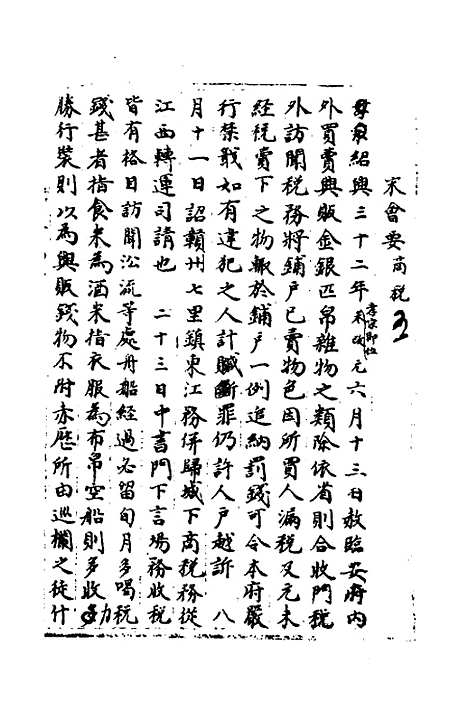 宋會要 商稅
孝宗紹興三十二年孝宗即位未改元六月十三日赦臨安府內
外買賣興販金銀匹帛雜物之類除依省則合收門稅
外訪聞稅務將鋪户已賣物色因所買人漏稅及元未
經稅賣下之物輒於鋪户一例追納罰錢可令本府嚴
行禁戢如有違犯之人計贓斷罪仍許人户越訴 八
月十一日詔贛州七里鎮東江務併歸城下商稅務從
江西轉運司請也 二十三日中書門下言場務收稅
皆有格日訪聞㳂流等處舟船經過必留旬月多喝稅
錢甚者指食米為酒米指衣服為布帛空船則多收力
勝行裝則以為興販錢物不附赤歷所由巡欄之徒什